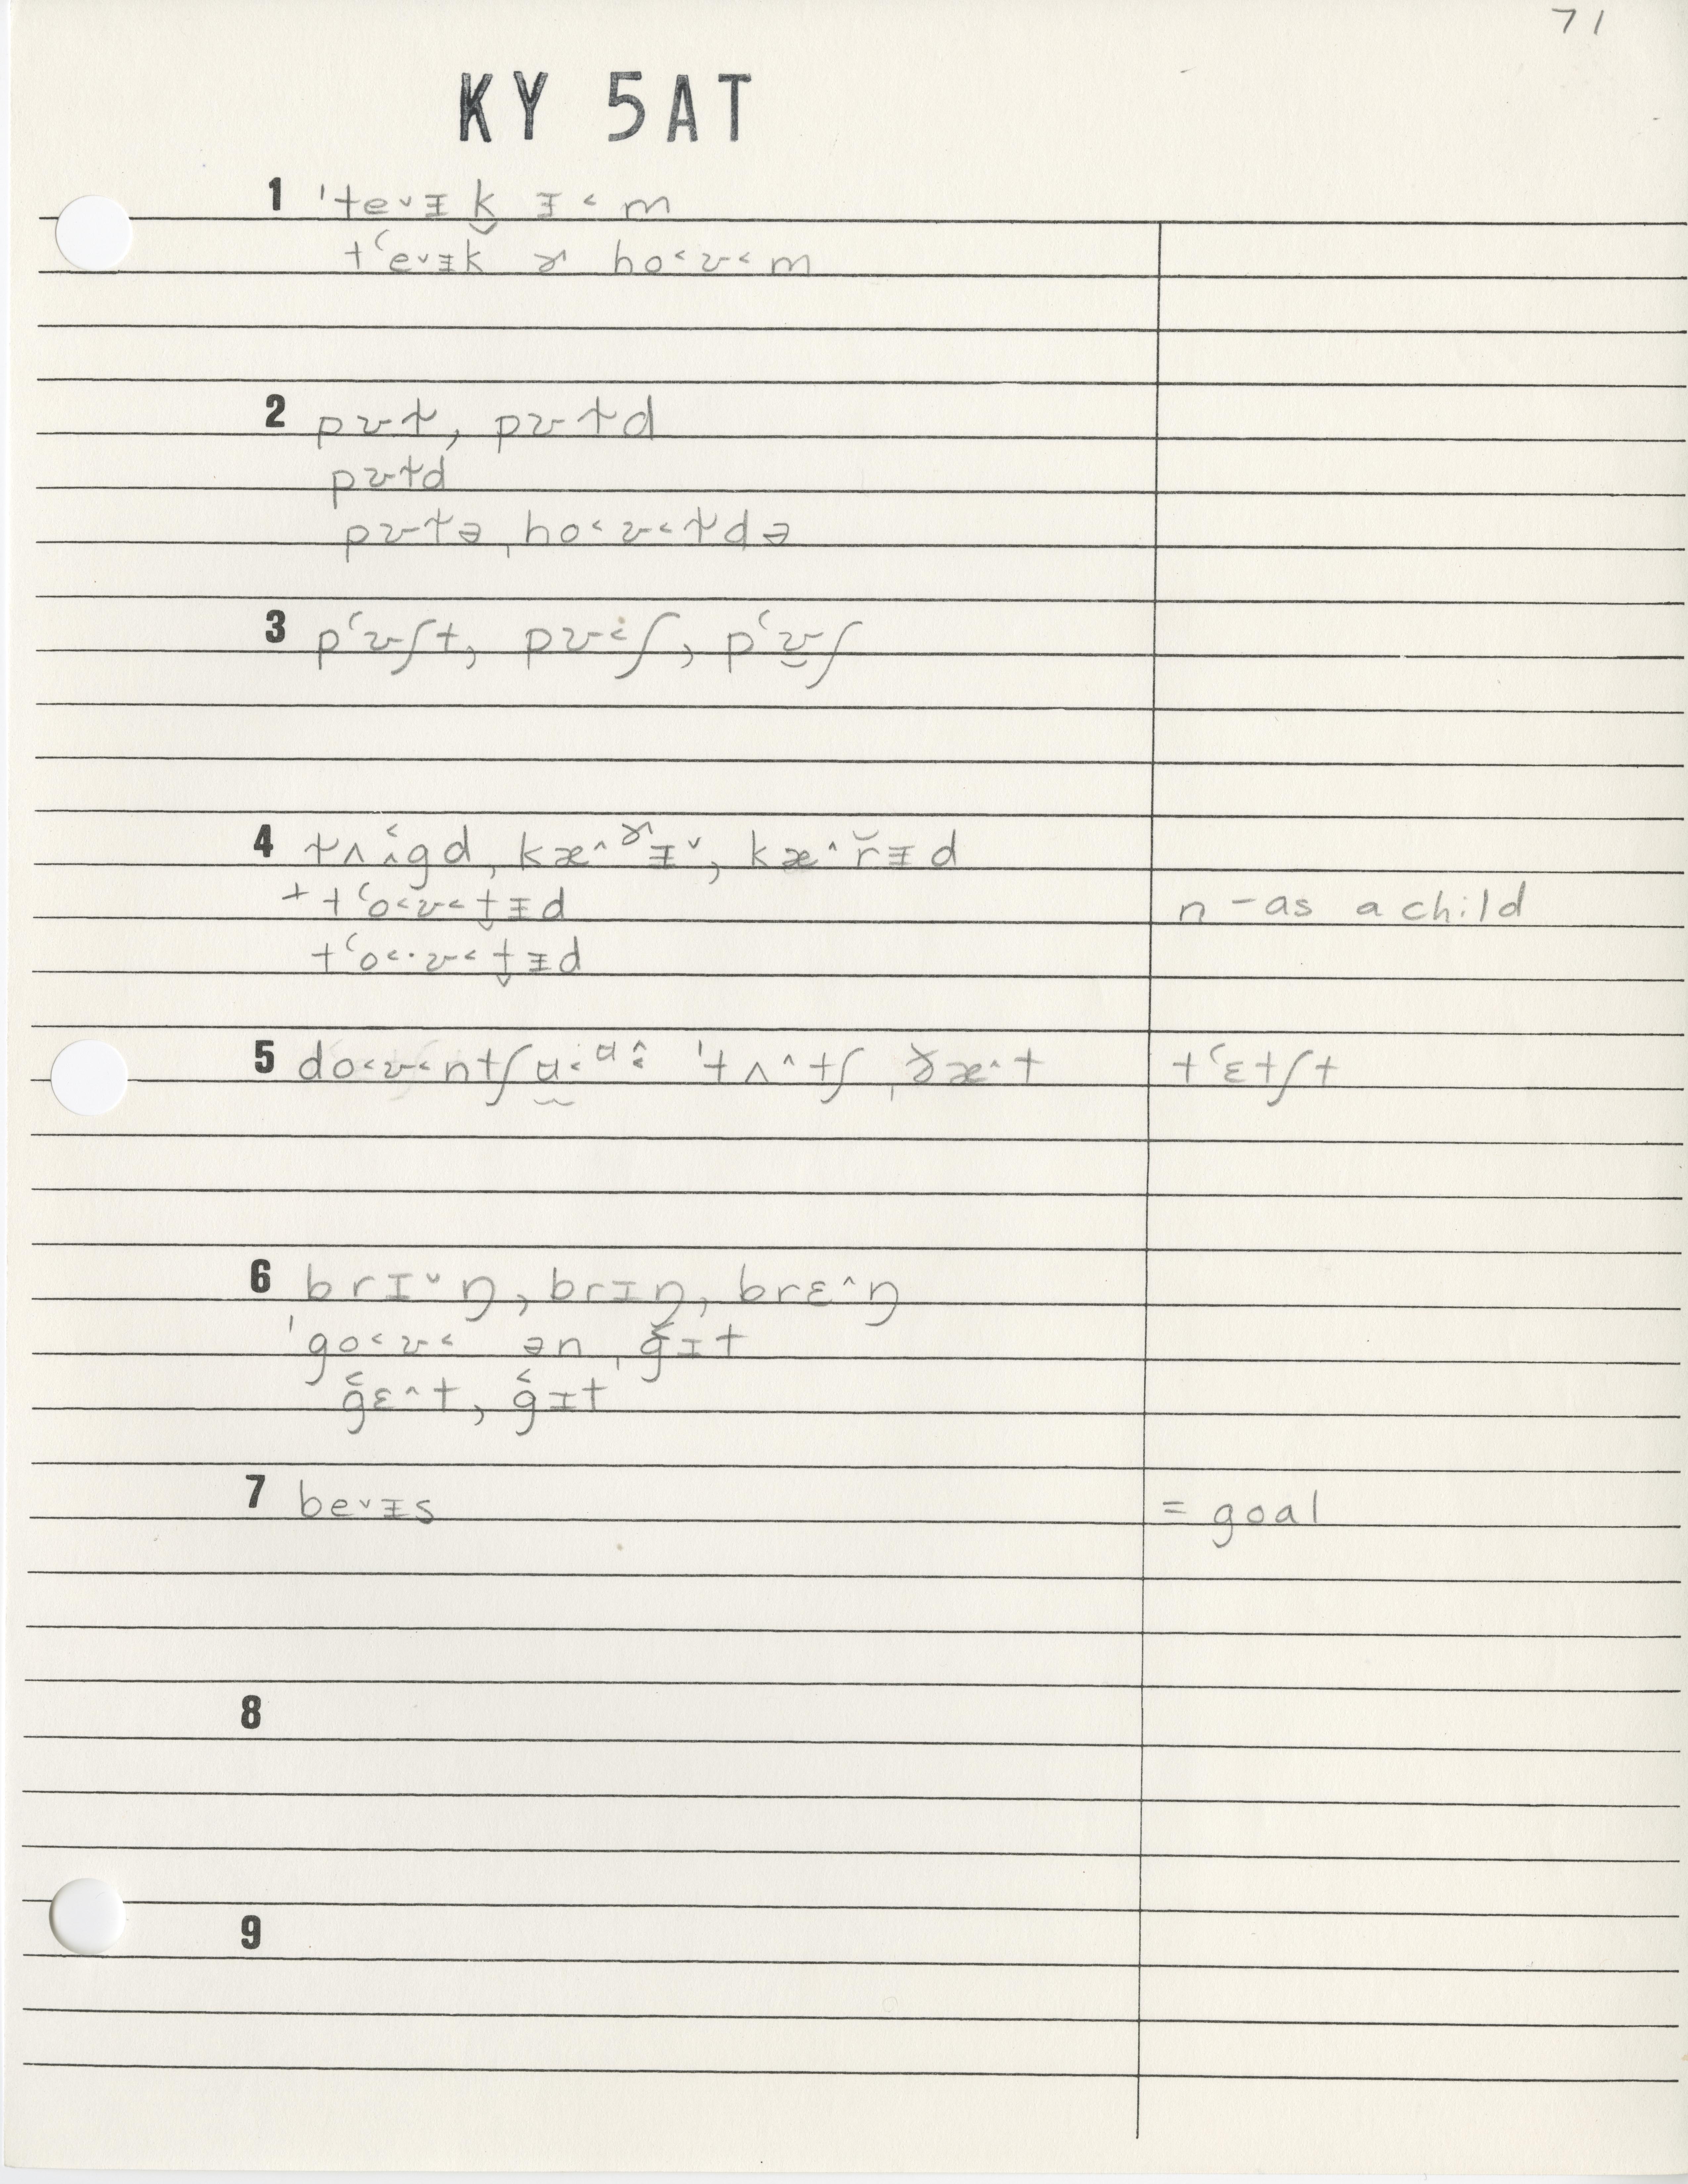 71
KY 5AT
1 ˈte˅ᵻk̬ ᵻ˂m
t‘e˅ᵻk ɚ ho˂ʊ˂m
2 pʊɫ, pʊɫd
pʊɫd
pʊɫə, ho˂ʊ˂ɫdə
3 p‘ʊʃt, pʊ˂ʃ, p‘ʊ̬ʃ
4 ɫʌʌ̂gd, kæ^ɚᵻ˅, kæ^r̆ᵻd
+ t‘o˂ʊ˂t̬ᵻd n - as a child
t‘o˂·ʊ˂t̬ᵻd
5 do˂ʊ˂ntʃ ˈtʌ^tʃ, ðæ^t t‘ɛtʃt
6 brɪ˅ŋ, brɪŋ, brɛ^ŋ
ˈgo˂ʊ˂ ən ˌg̬ɪt
g̑ɛ^t, g̑ɪt
7 be˅ᵻs = goal
8
9